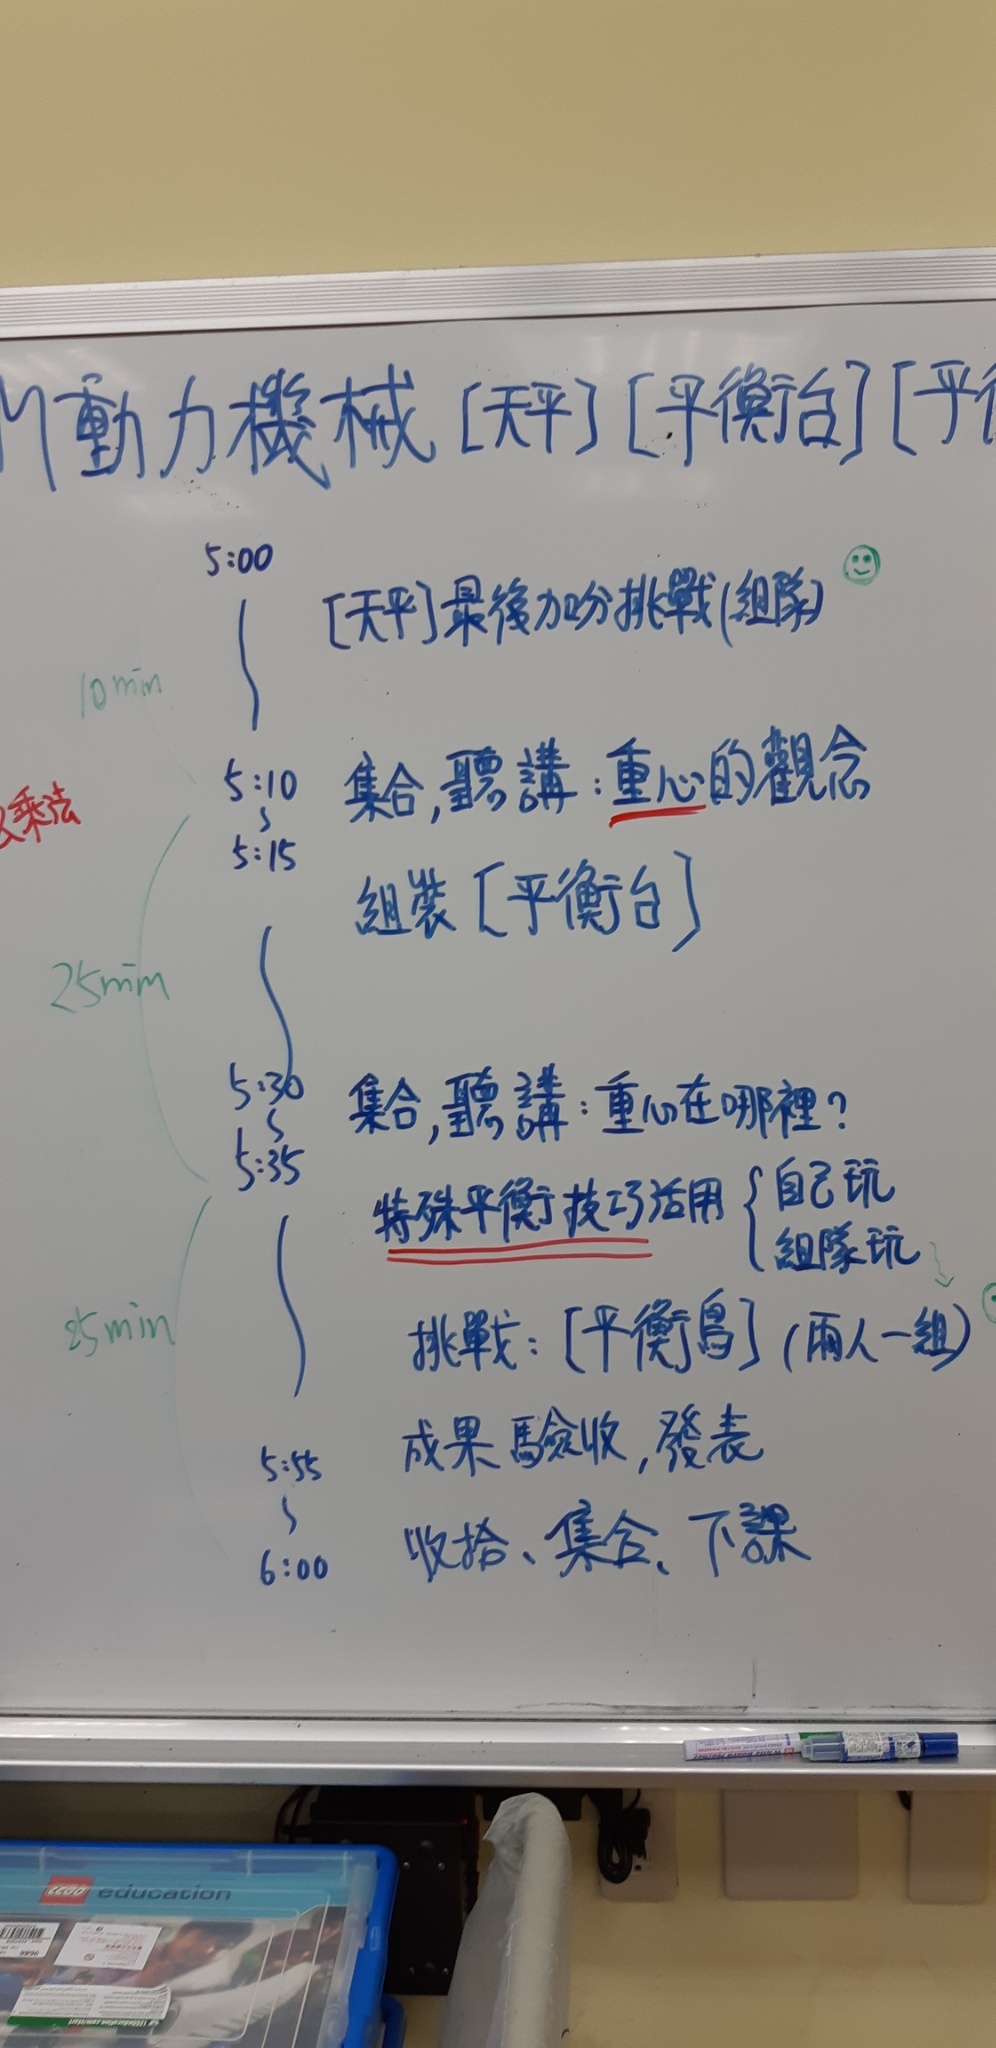 M動力機械 [天平] [平衡台] [平
5:00
[天平] 最後加分挑戰(組隊)
10min
5:10 集合,聽講:重心的觀念
乘法
5:15
組裝 [平衡台]
25min
5:30 集合,聽講:重心在哪裡?
5:35
特殊平衡技巧活用 { 自己玩
組隊玩
25min
挑戰: [平衡鳥] (兩人一組)
成果驗收,發表
5:55
收拾、集合、下課
6:00
LEGO education